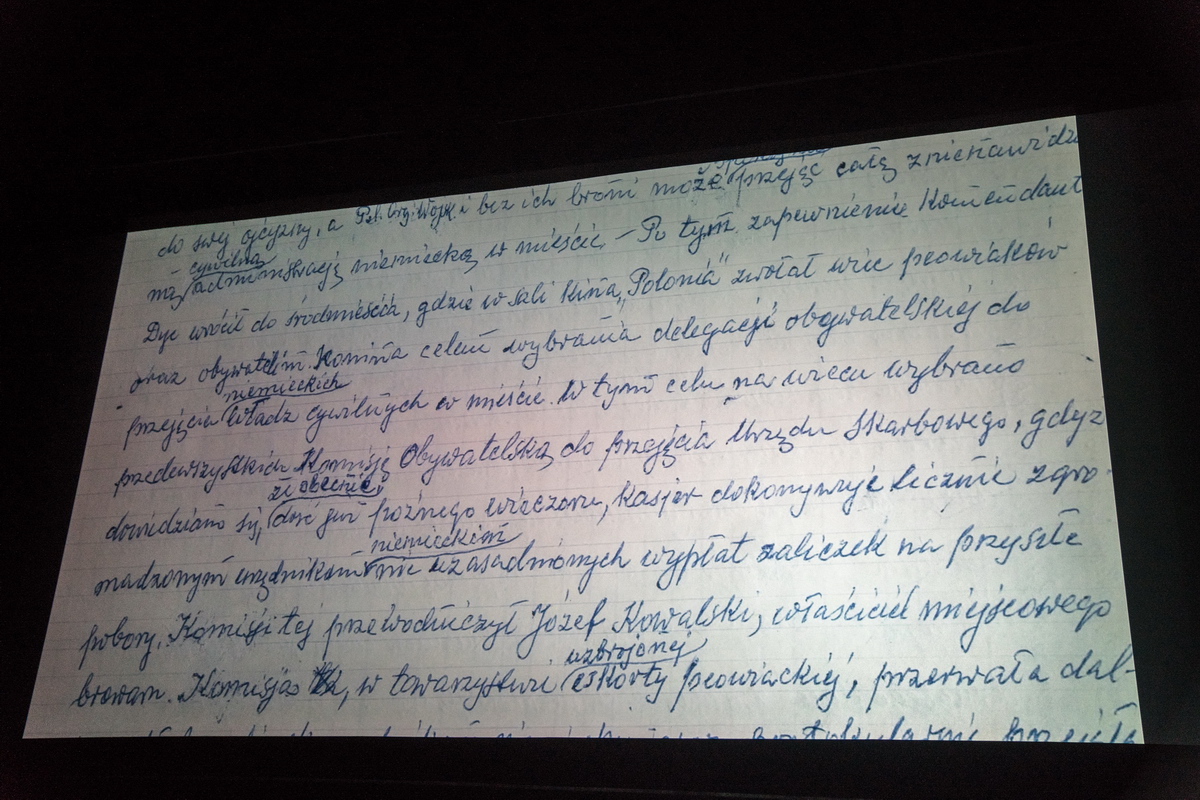 do swej ojczyzny, a Pol. Org. Wojsk. i bez ich broni może przejąc całą znienawidzo
cywilną
ną administrację niemiecką w mieście. – Po tym zapewnienie Komendant
Dyc wrócił do śródmieścia, gdzie w sali Kina „Polonia" zwołał wiec peowiaków
oraz obywateli m. Konina celem wybrania delegacji obywatelskiej do
niemieckich
przejęcia władz cywilnych w mieście. W tym celu na wiecu wybrano
przedewszystkiem Komisję Obywatelską do przejęcia Urzędu Skarbowego, gdyż
że obecnie,
dowidziano się, dość już późnego wieczoru, kasjer dokonywuje licznie zgro-
niemieckim
madzonym urzędnikom nie uzasadnionych wypłat zaliczek na przyszłe
pobory. Komisji tej przewodniczył Józef Kowalski, właściciel miejscowego
uzbrojonej
browaru. Komisja ta, w towarzystwie eskorty peowiackiej, przerwała dal-